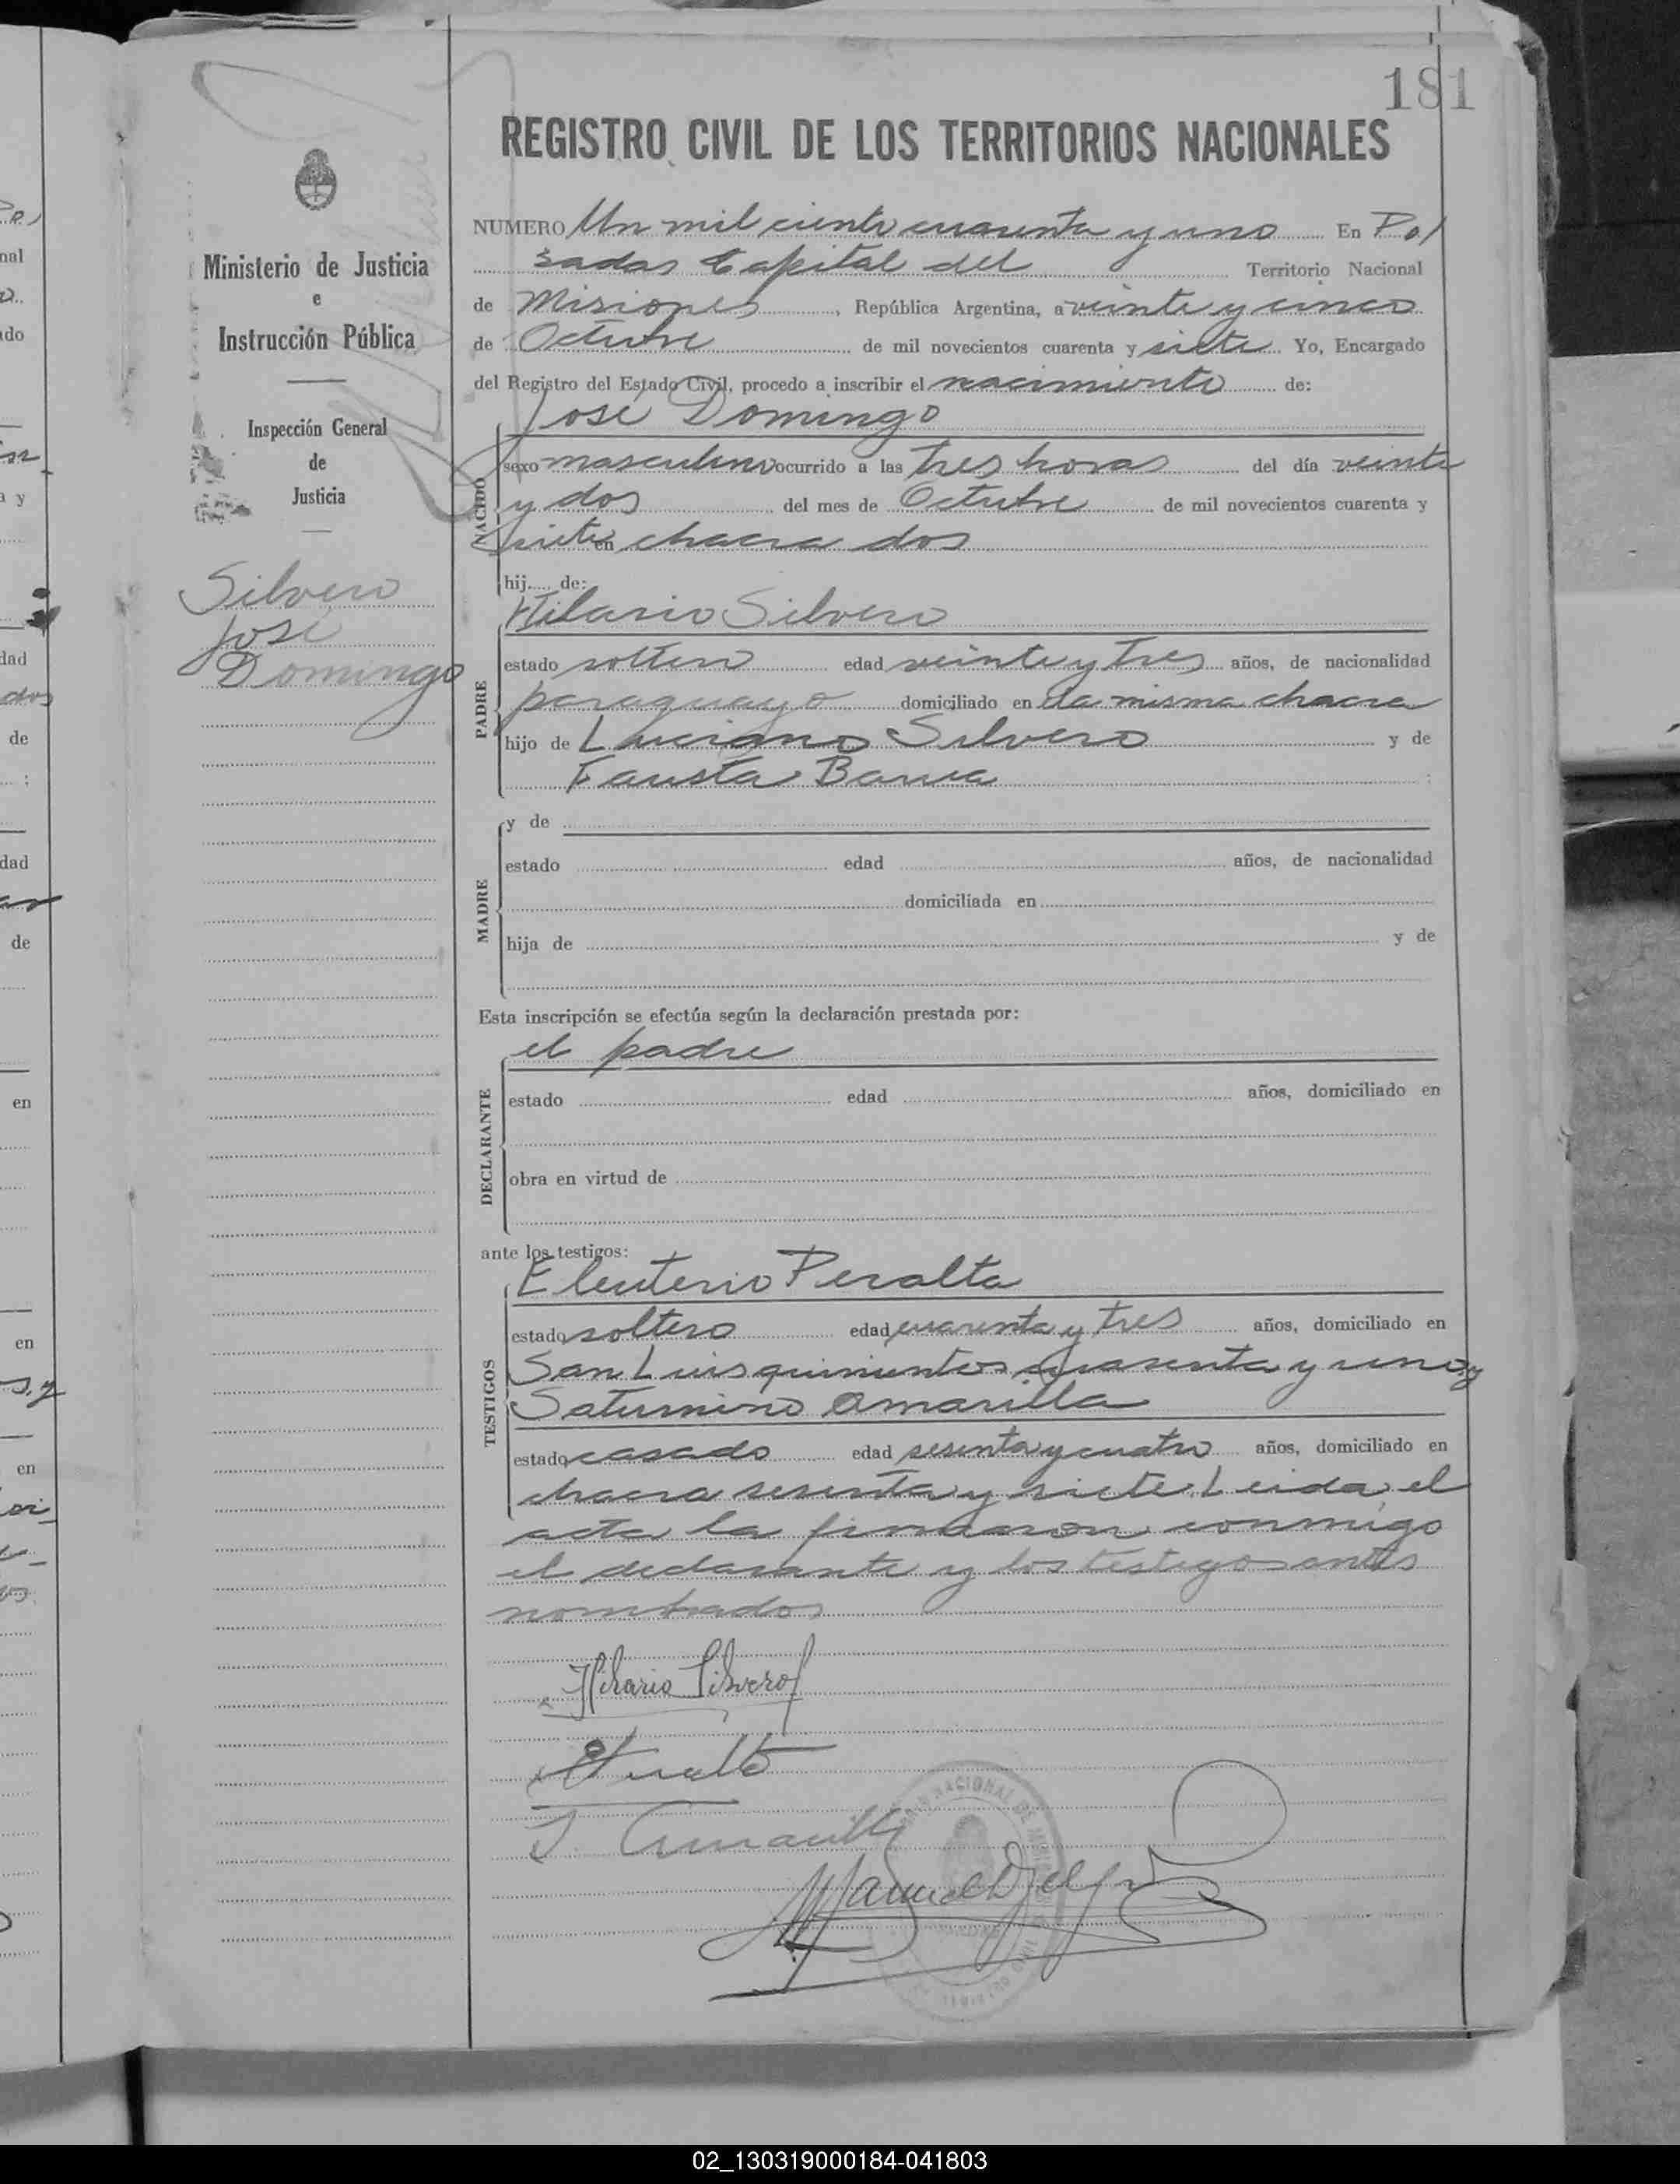 181
REGISTRO CIVIL DE LOS TERRITORIOS NACIONALES
Ministerio de Justicia
e
Instrucción Pública
Inspección General
de
Justicia
Silvero
José
Domingo
NUMERO Un mil ciento cuarenta y uno En Po/
sadas Capital del Territorio Nacional
de Misiones, República Argentina, a veinte y cinco
de Octubre de mil novecientos cuarenta y siete Yo, Encargado
del Registro del Estado Civil, procedo a inscribir el nacimiento de:
José Domingo
NACIDO
sexo masculino ocurrido a las tres horas del día veinte
y dos del mes de Octubre de mil novecientos cuarenta y
siete en chacra dos
hij de:
Hilario Silvero
PADRE
estado soltero edad veinte y tres años, de nacionalidad
paraguayo domiciliado en la misma chacra
hijo de Luciano Silvero y de
Fausta :
MADRE
y de
estado edad años, de nacionalidad
domiciliada en
hija de y de
Esta inscripción se efectúa según la declaración prestada por:
el padre
DECLARANTE
estado edad años, domiciliado en
obra en virtud de
ante los testigos:
TESTIGOS
Eleuterio Peralta
estado soltero edad cuarenta y tres años, domiciliado en
San Luis quinientos cuarenta y uno y
Saturnino Amarilla
estado casado edad sesenta y cuatro años, domiciliado en
chacra sesenta y siete. Leida el
acta la firmaron conmigo
el declarante y los testigos antes
nombrados
Hilario Silvero
E Peralta
S. Amarilla
Manuel
02_130319000184-041803